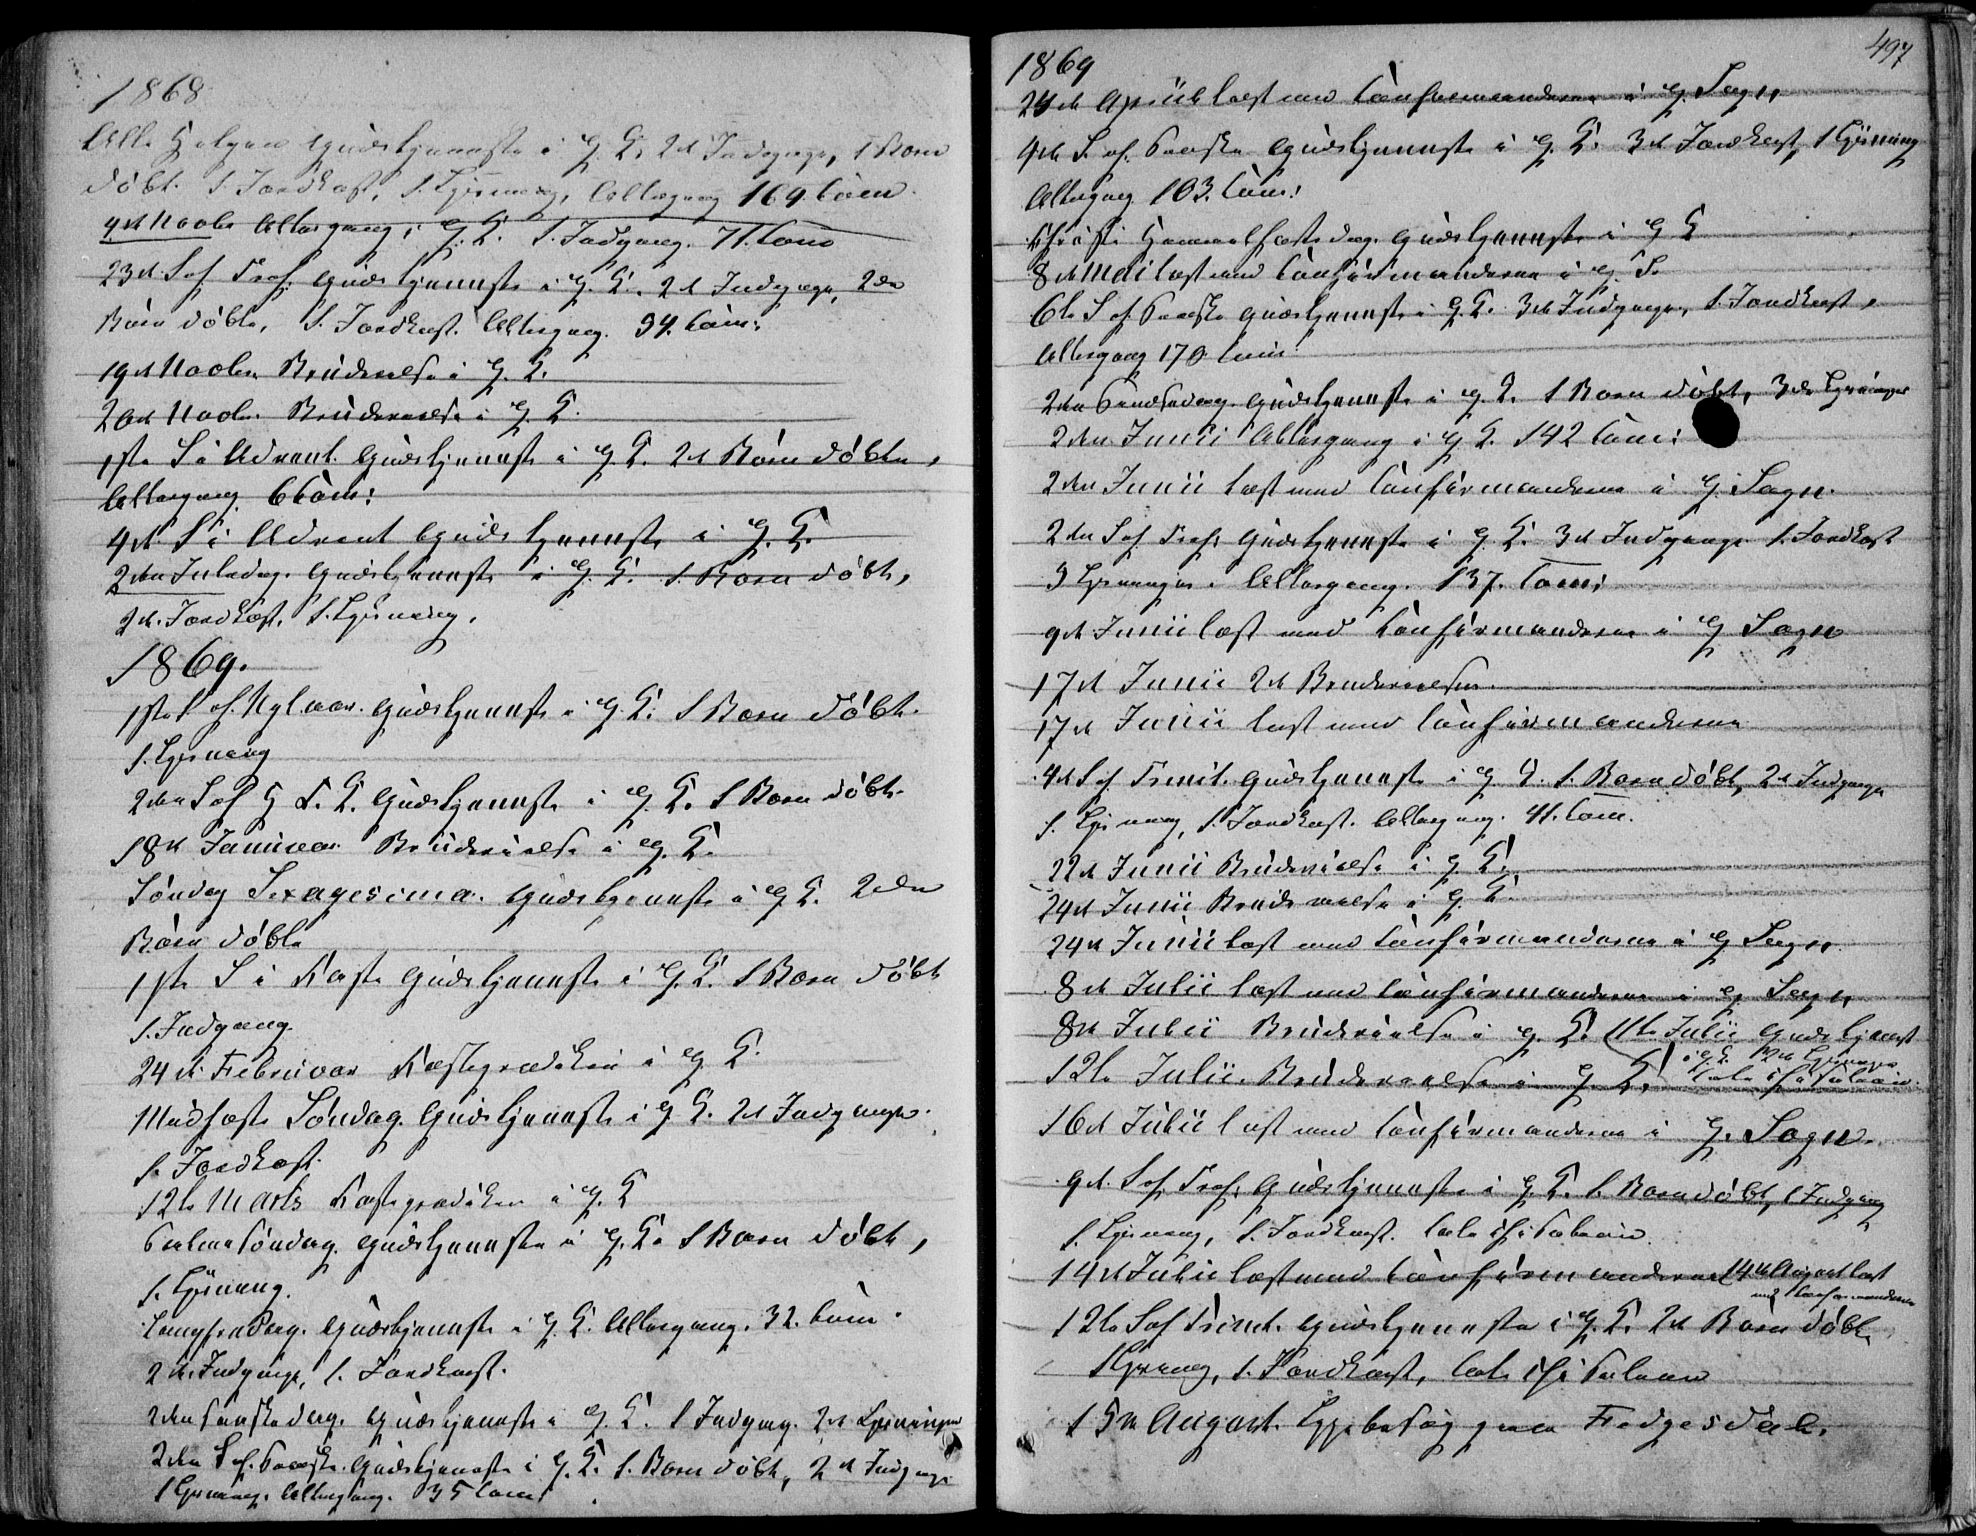 1868
Alle Helgen Gudstjeneste i G. K. 2de Indgange, 1 Barn
døbt. 1. Jordkast, 1. Lysning, Altergang 169 Com.
9de Novbr Altergang i G. K. 1. Indgang. 71. Com
23de S. ef. Tref. Gudstjeneste i G. K. 2de Indgange, 2de
Børn døbte, 1. Jordkast. Altergang. 94. Com:
19de Novbr. Brudevielse i G. K.
26de Novbr. Brudevielse i G. K.
1ste S. i Advent. Gudstjeneste i G. K. 2de Børn døbte,
Altergang 6 Com:
4de S. i Advent Gudstjeneste i G. K.
2den Juledag. Gudstjeneste i G. K. 1. Barn døbt,
2de Jordkast, 1. Lysning.
1869.
1ste S. ef. Nytaar. Gudstjeneste i G. K. 1 Barn døbt.
1. Lysning
2den S. ef H. 3. K. Gudstjeneste i G. K. 1 Barn døbt.
18de Januar Brudevielse i G. K.
Søndag Sexagesima. Gudstjeneste i G. K. 2de
Børn døbte
1ste S. i Faste Gudstjeneste i G. K. 1 Barn døbt
1. Indgang
24de Februar Fasteprædiken i G. K.
Midfaste Søndag. Gudstjeneste i G. K. 2de Indgange.
1. Jordkast.
12te Marts Fasteprædiken i G. K
Palmesøndag. Gudstjeneste i G. K. 1 Barn døbt,
1. Lysning.
Langfredag. Gudstjeneste i G. K. Altergang. 32. Com.
2de Indgange, 1. Jordkast.
2den Paaskedag. Gudstjeneste i G. K. 1 Indgang. 2de Lysninger
2den S. ef. Paaske. Gudstjeneste i G. K. 1. Barn døbt, 2de Indgange
1 Lysning. Altergang. 35 Com:
497
1869
24de April læst med Confirmanderne i G. Sogn
4de S. ef. Paaske Gudstjeneste i G. K. 3de Jordkast, 1 Lysning
Altergang 103. Com:
Christi Himmelfartsdag. Gudstjeneste i G K
8de Mai læst med Confirmanderne i G. S.
6te S. ef. Paaske Gudstjeneste i G. K. 3de Indgange, 1. Jordkast,
Altergang 170 Com:
2den Pindsedag. Gudstjeneste i G. K. 1 Barn døbt, 3de Lysninger
2den Junii Altergang i G. K. 142 Com:
2den Junii læst med Confirmanderne i G. Sogn.
2den S. ef. Tref. Gudstjeneste i G. K. 3de Indgange 1. Jordkast
3 Lysninger. Altergang. 137. Com:
9de Junii læst med Confirmanderne i G Sogn
17de Junii 2de Brudevielser.
17de Junii læst med Confirmanderne
4de S. ef. Trinit. Gudstjeneste i G. K. 1. Barn døbt, 2de Indgange
1. Lysning, 1. Jordkast. Altergang. 41. Com.
22de Junii Brudevielse i G. K.
24de Junii Brudevielse i G. K.
24de Junii læst med Confirmanderne i G Sogn.
8de Julii læst med Confirmanderne i G. Sogn
8de Julii Brudevielse i G. K. 11te Julii Gudstjeneste
i G. K. Lysninger
12te Julii. Brudevielse i G. K.
16de Julii læst med Confirmanderne i G. Sogn.
9de S. ef. Tref. Gudstjeneste i G. K. 1. Barn døbt, 1 Indgang
1. Lysning, 1. Jordkast.
14de Julii læst med Confirmanderne 14de August læst
med Confirmanderne
12te S. ef Trinit. Gudstjeneste i G. K. 2de Børn døbte
1 Lysning, 1. Jordkast,
15de August. Sygebesøg paa